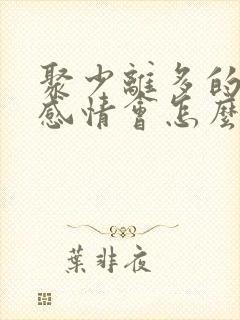 聚少離多的
感情會怎麼
葉非夜